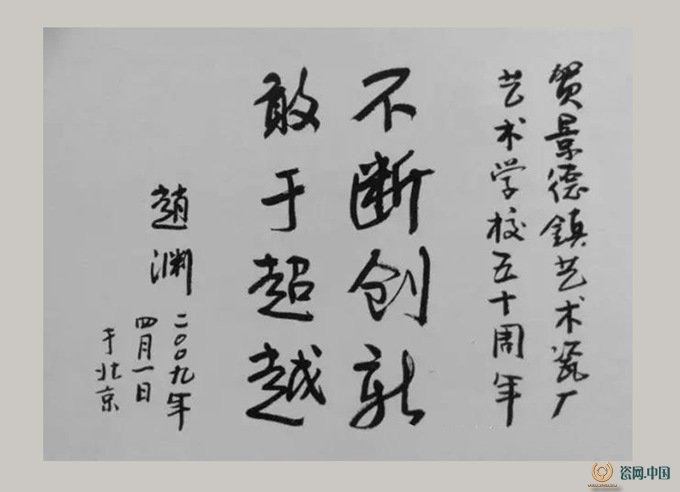 贺景德鎮艺术瓷厂
艺术学校五十周年
不断创新
敢于超越
趙渊
二〇〇九年
四月一日
于北京
瓷网.中国